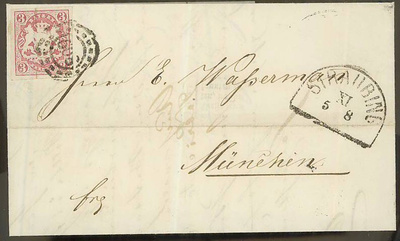 3 3
3 3
Herrn E. Wassermann
STRAUBING
XI
5 8
München.
frz